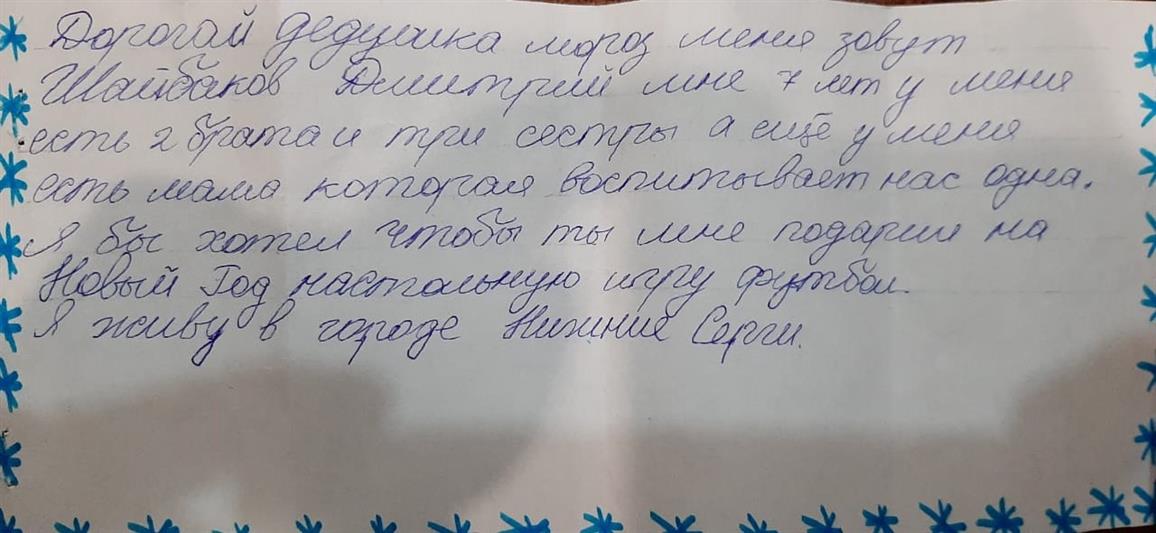 Дорогай дедушка мороз меня зовут
Шайбаков Дмитрий мне 7 лет у меня
есть 2 брата и три сестры а ещё у меня
есть мама которая воспитывает нас одна.
Я бы хотел чтобы ты мне подарил на
Новый Год настольную игру футбол.
Я живу в городе Нижние Серги.